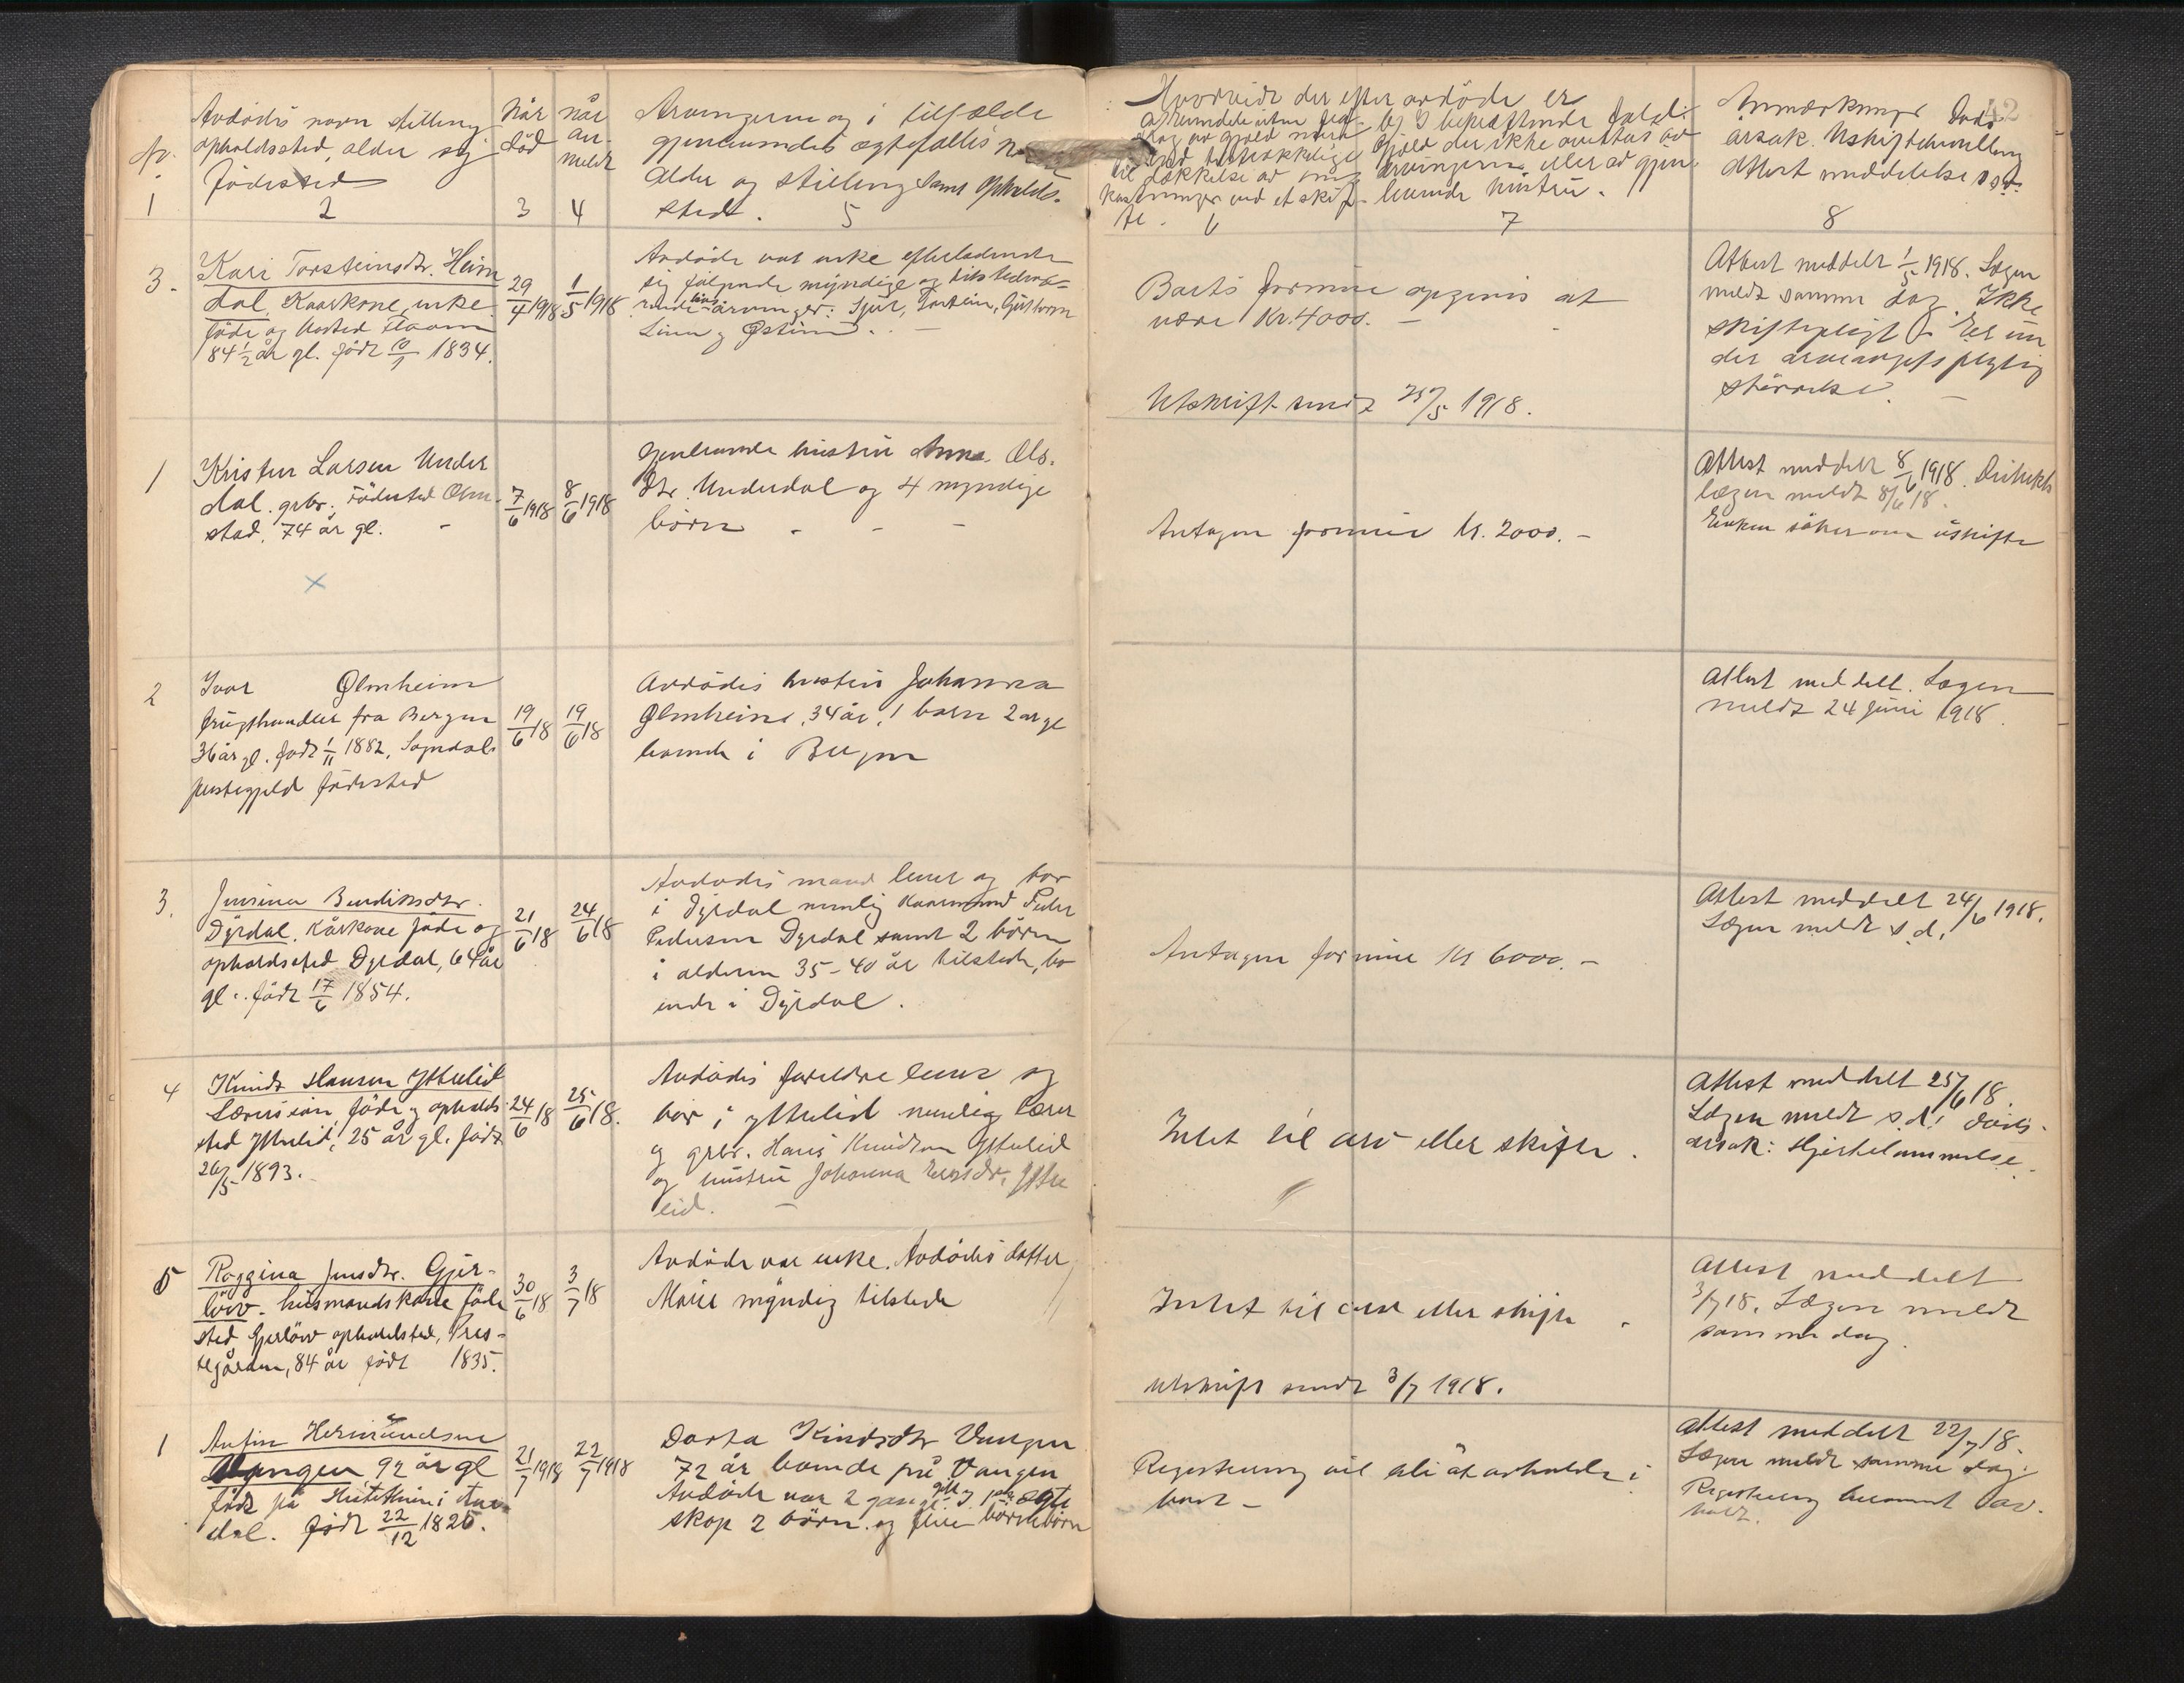 No.
1
Avdødes navn stilling
opholdssted, alder og
fødested
2
Når
død
3
når
an-
meldt
4
Arvingerne og i tilfælde
gjenlevendes ægtefælles
alder og stilling samt opholds-
sted.
5
Hvorvidt der efter avdøde er
til dækkelse av
6
arvingerne eller av gjen-
levende hustru.
7
42
Anmærkninger Døds-
årsak. Uskiftebevilling
Attest meddelelse osv.
8
3.
Kari Torsteinsdtr. Heim
dal. Kaarkone, enke.
føde og bosted Flaam
84 1/2 år gl. født 10/1 1834.
29/4 1918
1/5 1918
Avdøde var enke efterladende
sig følgende myndige og tilstedevæ-
rende arvinger: Sjur, Torstein, Guttorm
og Østein.
Boets formue opgives at
være Kr. 4000. -
Utskrift sendt 25/5 1918.
Attest meddelt 1/5 1918. Lægen
meldt samme dag. Ikke
skiftepligtig. Er un
der arveavgifts pligtig
størrelse. -
1
Kristen Larsen Under
dal. grbr. fødested Olm-
stad, 74 år gl. -
7/6 1918
8/6 1918
Gjenlevende hustru Anna Ols.
dtr. Underdal og 4 myndige
børn - - -
Antagen formue kr. 2000. -
Attest meddelt 8/6 1918. Distrikts
lægen meldt 8/6 18.
Enken søker om uskifte
2
Ivar Ølmheim
frugthandler fra Bergen
36 år gl. født 1/11 1882, Sogndals
prestegjeld fødested
19/6 18
19/6 18
Avdødes hustru Johanna
Ølmheim, 34 år, 1 barn 2 år gl
boende i Bergen
Attest meddelt. Lægen
meldt 24 juni 1918.
3.
Jensina Bendiksdtr.
Dyrdal. Kårkone føde og
opholdssted Dyrdal, 64 år
gl. født 17/6 1854.
21/6 18
24/6 18
Avdødes mand lever og bor
i Dyrdal nemlig Kaarmand Peder
Pedersen Dyrdal samt 2 børn
i alderen 35-40 år tilstede, bo
ende i Dyrdal.
Antagen formue kr 6000. -
Attest meddelt 24/6 1918.
Lægen meldt s.d.
4
Knudt Hansen Ytreleid
føde og opholds-
sted Ytreleid, 25 år gl. født
26/5 1893.
24/6 18
25/6 18.
Avdødes foreldre lever og
bor i Ytreleid nemlig Lærer
og grbr. Hans Knudsen Ytreleid
og hustru Johanna Ytre
leid. -
Intet til arv eller skifte.
Attest meddelt 25/6 18.
Lægen meldt s.d. døds-
årsak: Hjertelammelse.
5
Roggina Jensdtr. Gjer-
løw. husmandskone føde
sted Gjerløw opholdsted, Pres-
tegården, 84 år født 1835.
30/6 18
3/7 18
Avdøde var enke. Avdødes datter
Marie myndig tilstede
Intet til arv eller skifte.
Utskrift sendt 3/7 1918.
Attest meddelt
3/7 18. Lægen meldt
samme dag.
1
Anfin Hermundsen
Vangen 92 år gl
født på i Aur-
dal. født 22/12 1826.
21/7 1918
22/7 1918
Dorta Knudsdtr Vangen
72 år boende på Vangen
Avdøde var 2 gange gift I 1ste ægte
skap 2 børn. og flere børnebørn
Registrering vil bli at avholde i
boet -
Attest meddelt 22/7 18.
Lægen meldt samme dag.
Registrering av-
holdt.